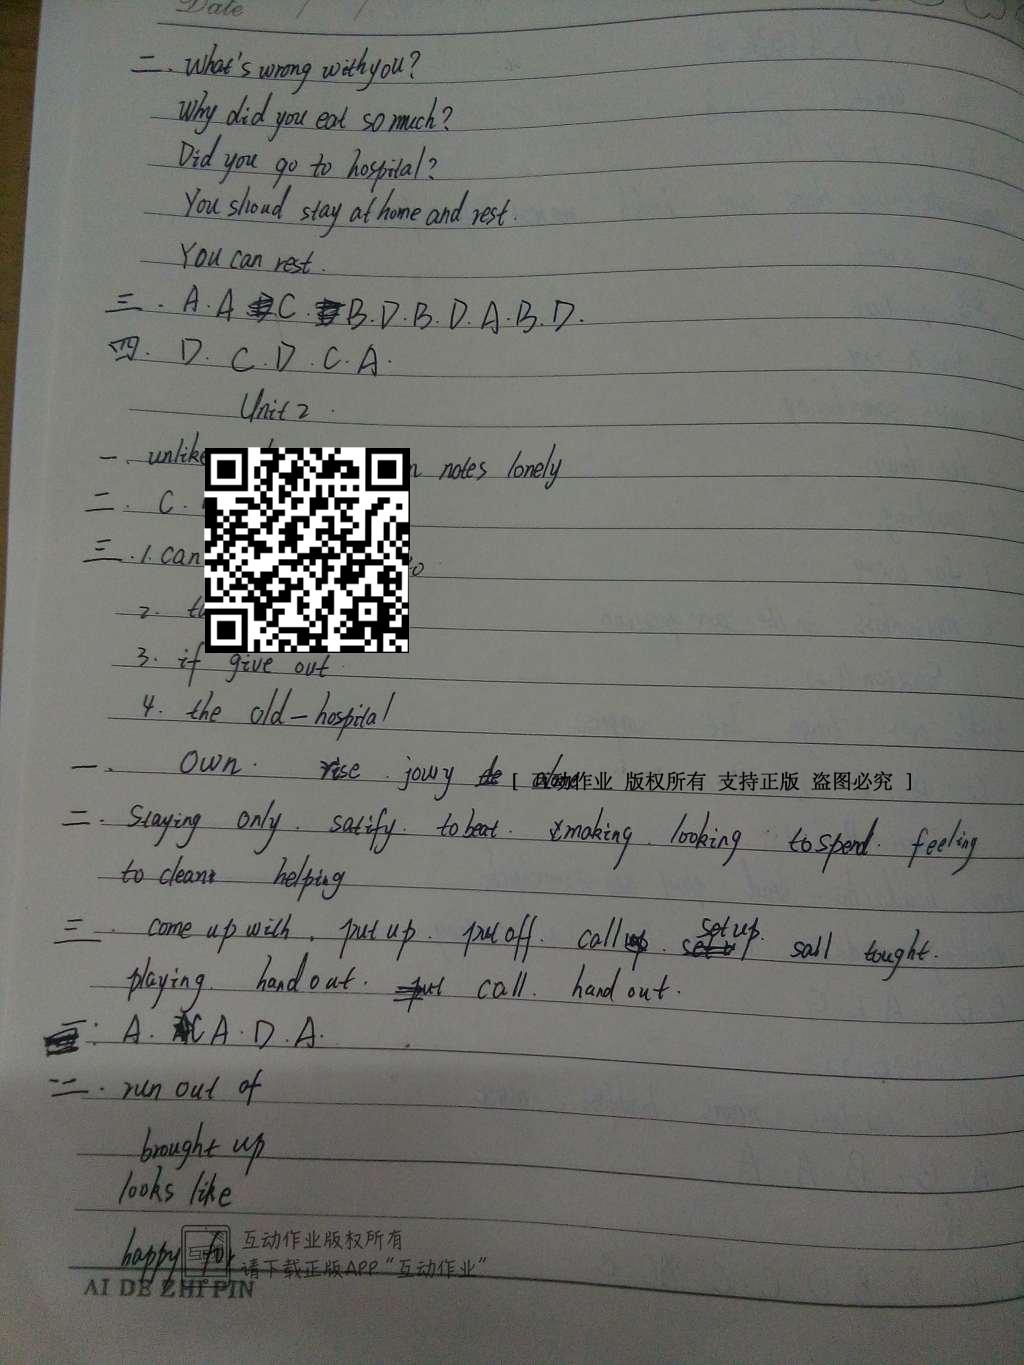 Date / /
二. What's wrong with you?
Why did you eat so much?
Did you go to hospital?
You shoud stay at home and rest.
You can rest.
三. A. A C. B. D. B. D. A. B. D.
四. D. C. D. C. A.
Unit 2.
一. unlike notes lonely
二. C.
三. 1. can
2.
3. if give out
4. the old-hospital
一. Own. rise. jowy
[ 互动作业 版权所有 支持正版 盗图必究 ]
二. Staying only. satify. to beat. making. looking to spend. feeling
to clean helping
三. come up with. put up. put off. call. set up. sall tought.
playing. hand out. call. hand out.
二: A. C A. D. A.
二. run out of
brought up
looks like
happy for
互动作业版权所有
请下载正版APP“互动作业”
AI DE ZHI PIN